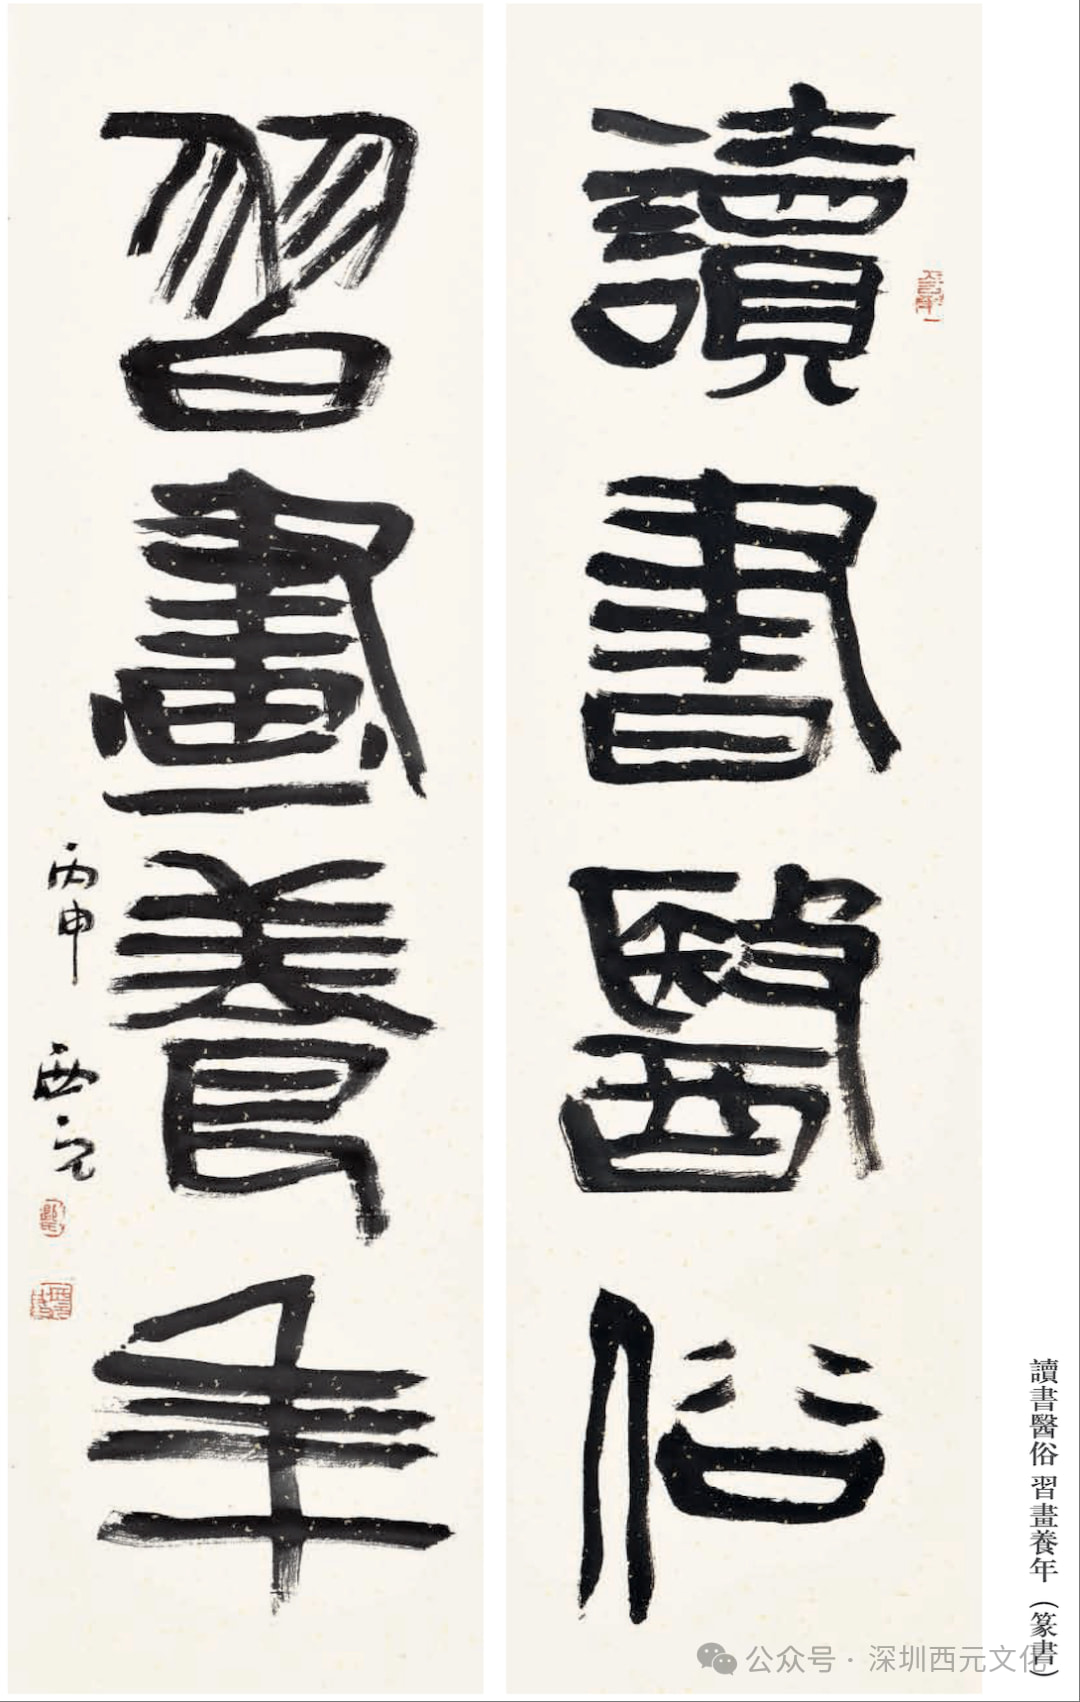 讀書醫俗
習畫養年
丙申 西元
讀書醫俗 習畫養年（篆書）
公众号 · 深圳西元文化